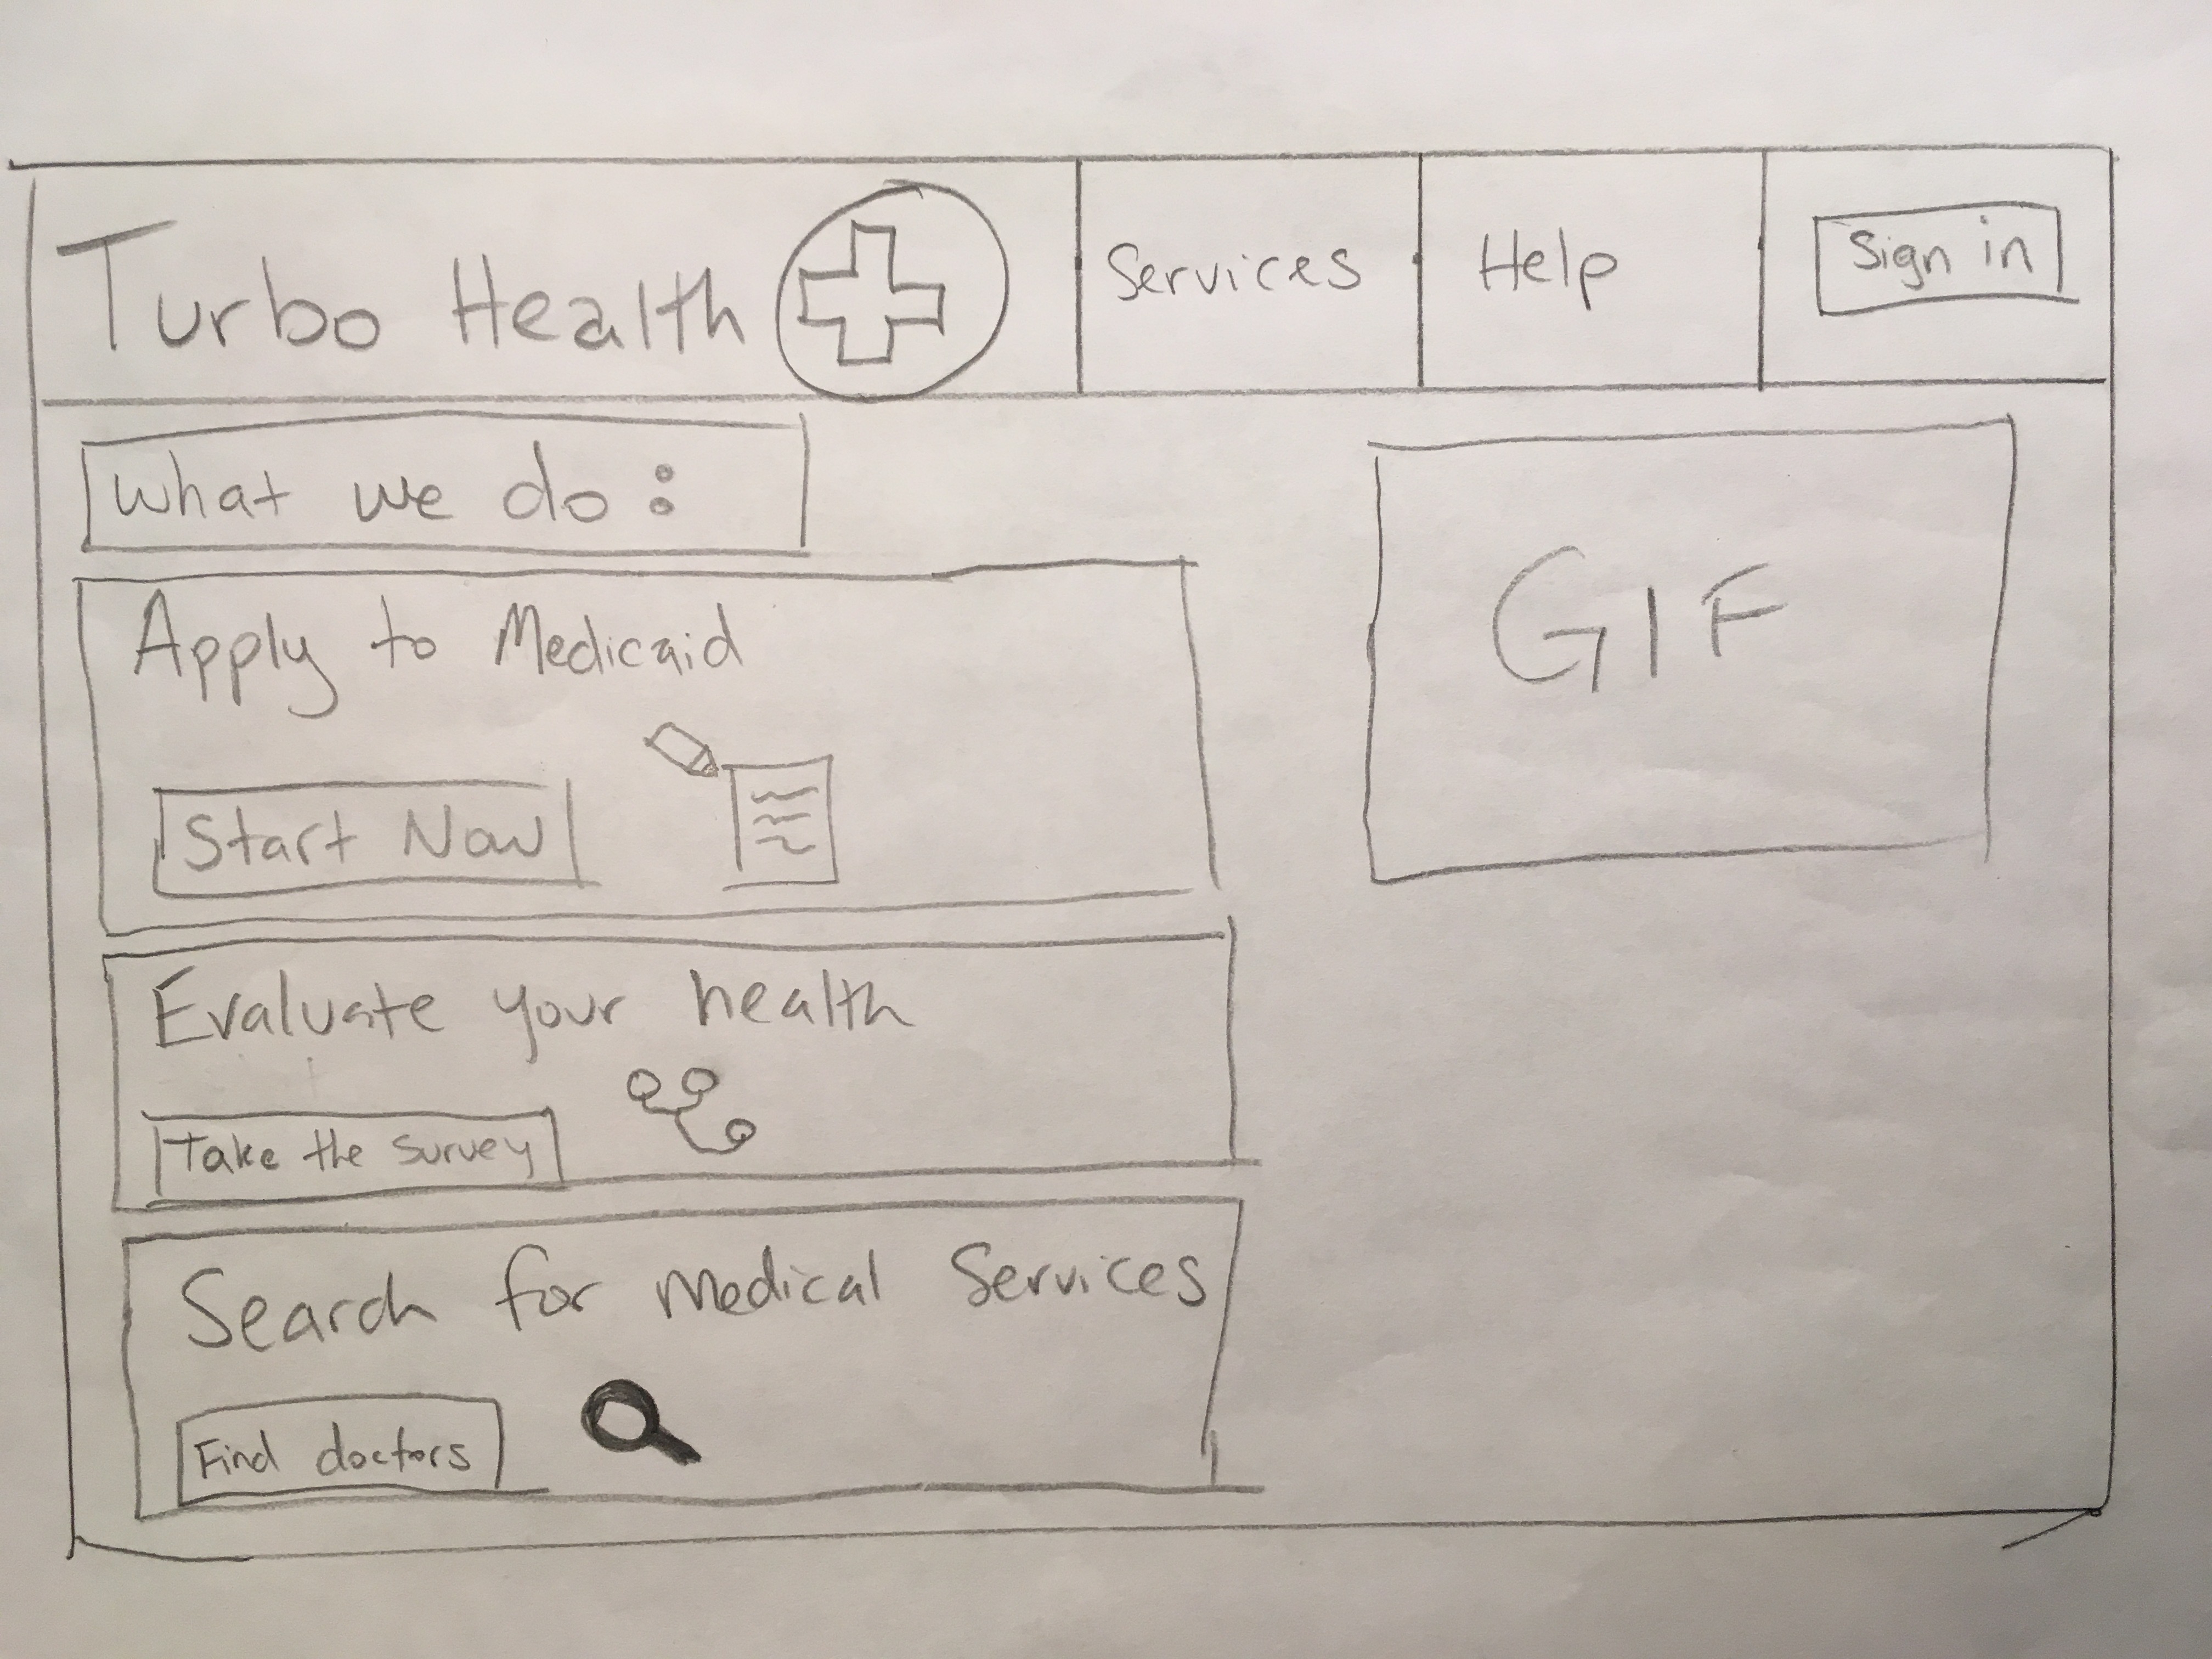 Turbo Health
Services
Help
Sign in
What we do:
GIF
Apply to Medicaid
Start Now
Evaluate your health
Take the survey
Search for Medical Services
Find doctors